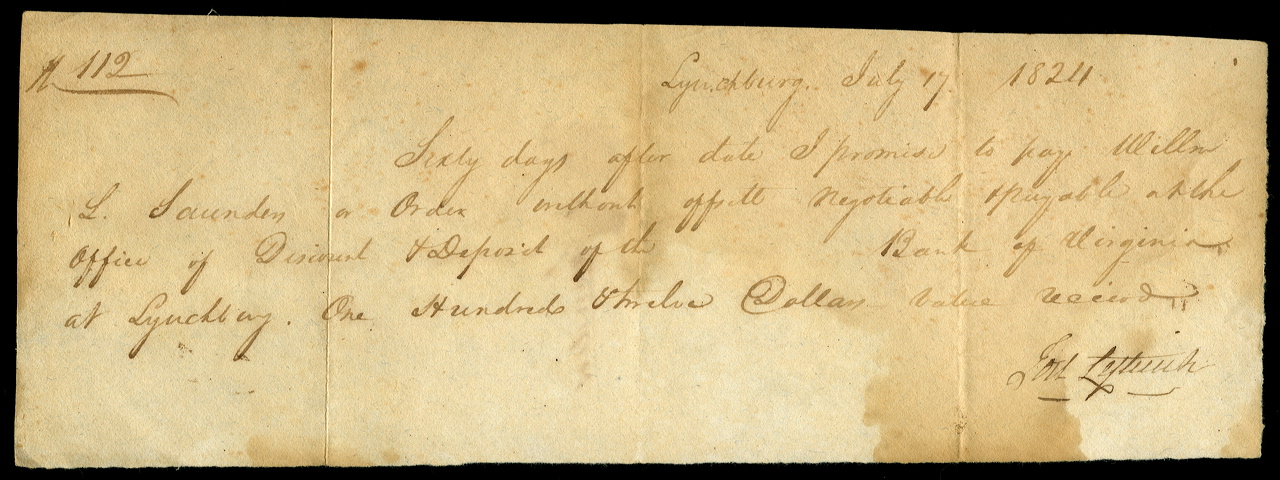 112
Lynchburg. July 17. 1824
Sixty days after date I promise to pay Willm
L. Saunders or Order without offsett Negotiable & payable at the
Office of Discount & Deposit of the Bank of Virginia
at Lynchburg. One Hundred & twelve Dollars value received
Leftwich